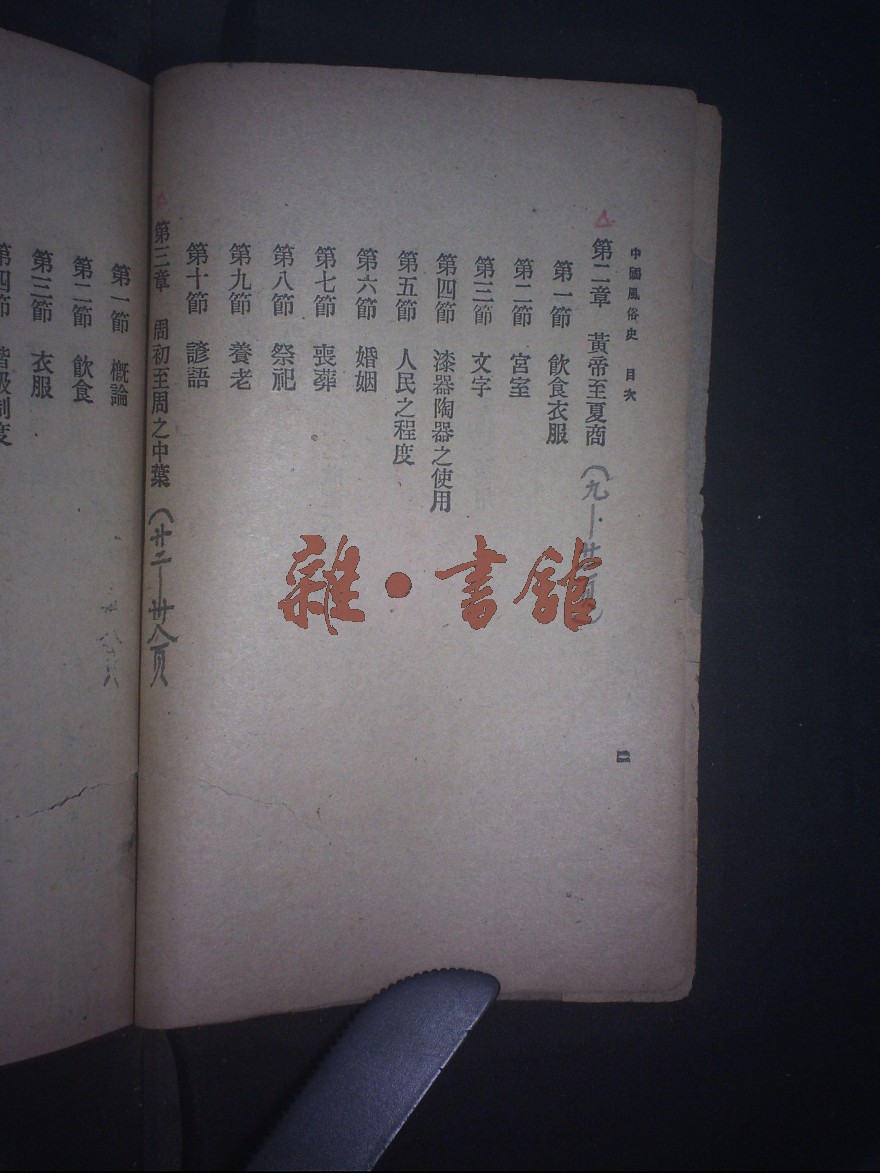 中國風俗史 目次
第二章 黃帝至夏商 (九—廿一頁)
第一節 飲食衣服
第二節 宮室
第三節 文字
第四節 漆器陶器之使用
第五節 人民之程度
第六節 婚姻
第七節 喪葬
第八節 祭祀
第九節 養老
第十節 諺語
二
第三章 周初至周之中葉 (廿二—卅八頁
第一節 概論
第二節 飲食
第三節 衣服
第四節 階級制度
雜·書館